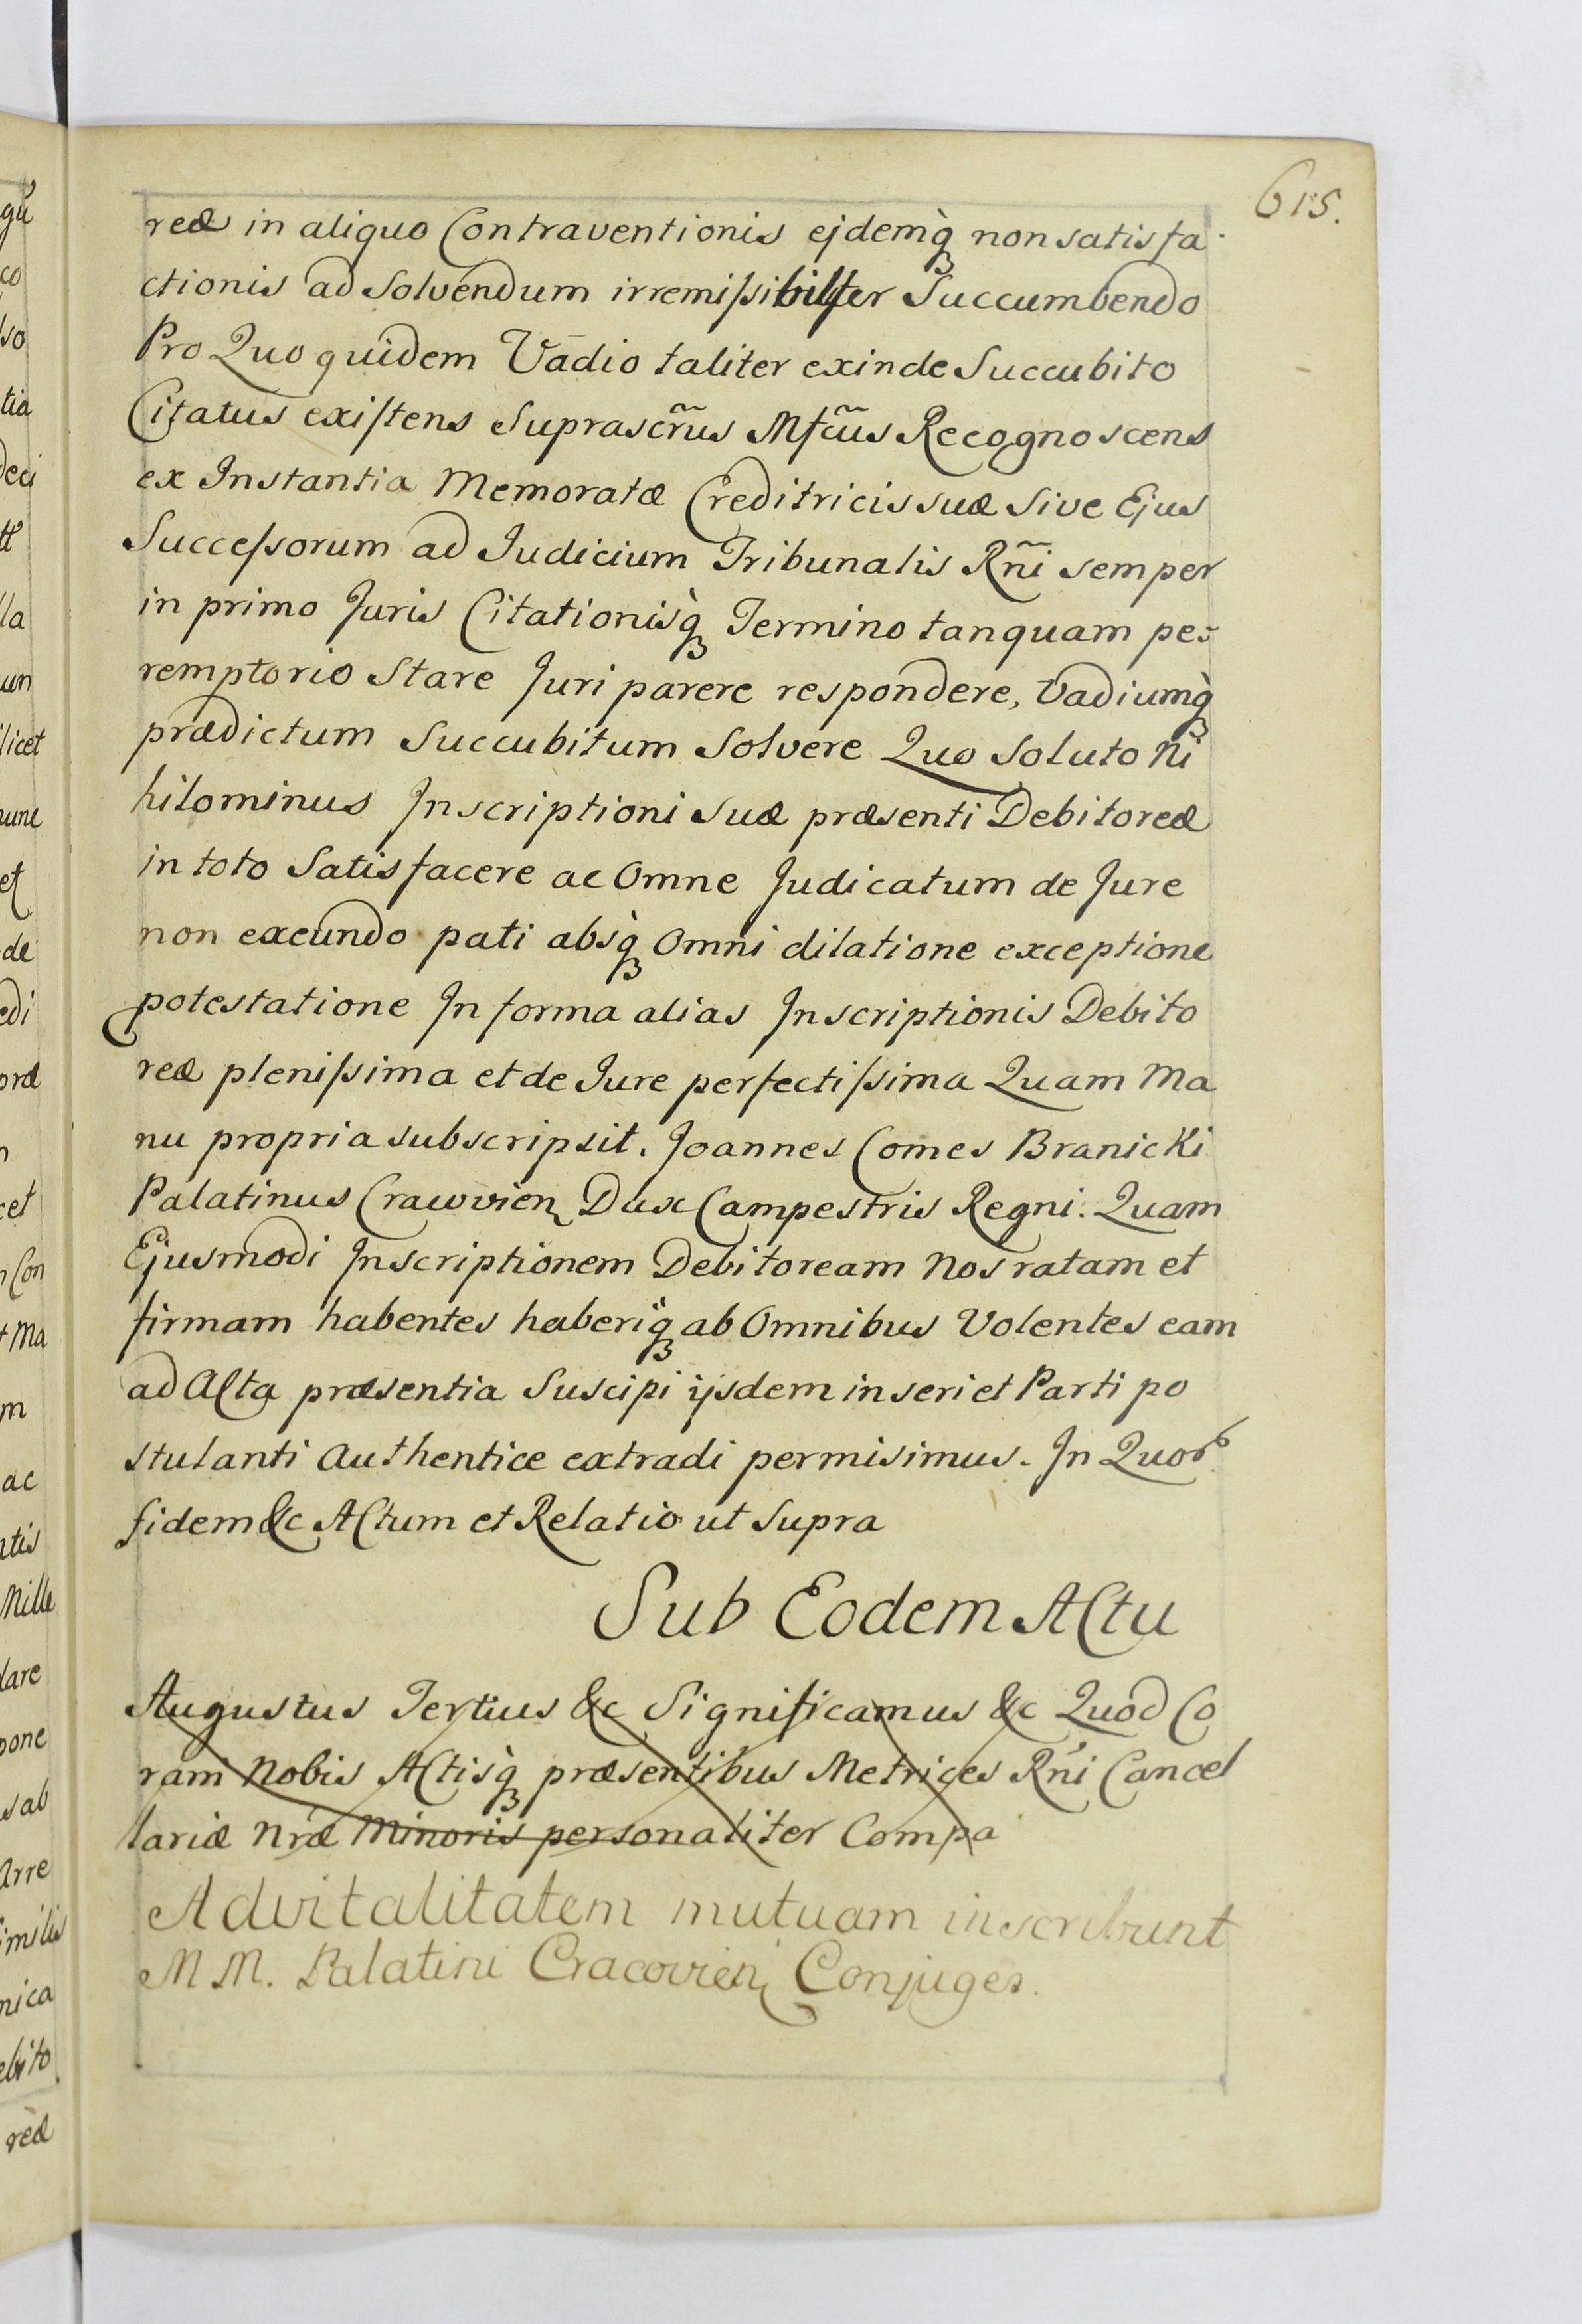 615.
reæ in aliquo Contraventionis ejdemq̀ non satisfa-
ctionis ad Solvendum irremißibilter Succumbendo
Pro Quo quidem Vadio taliter exinde Succubito
Citatus existens Suprascr̃us Mfc̃us Recognoscens
ex Instantia Memoratæ Creditricis suæ Sive Ejus
Succeßorum ad Judicium Tribunalis Rñi semper
in primo Juris Citationisq̀ Termino tanquam pe-
remptorio Stare Juri parere respondere, Vadiumq̀
prædictum Succubitum Solvere Quo Soluto Ni
hilominus Inscriptioni Suæ præsenti Debitoreæ
in toto Satisfacere ac Omne Judicatum de Jure
non eaeundo pati absq̀ Omni dilatione exceptione
potestatione In forma alias Inscriptionis Debito
reæ plenißima et de Jure perfectißima Quam Ma
nu propria subscripsit. Joannes Comes Branicki
Palatinus Cracovien Dux Campestris Regni. Quam
Ejusmodi Inscriptionem Debitoream Nos ratam et
firmam habentes haberiq̀ ab Omnibus Volentes eam
ad Acta præsentia Suscipi ijsdem inseri et Parti po
stulanti Authentice extradi permisimus. In Quor
fidem &c Actum et Relatio ut Supra
Sub Eodem Actu
Augustus Tertius &c Significamus &c Quod Co
ram Nobis Actisq̀ præsentibus Metrices Rñi Cancel
lariæ Nræ Minoris personaliter Compa
Advitalitatem mutuam inscribunt
M M. Palatini Cracovien Conjuges.